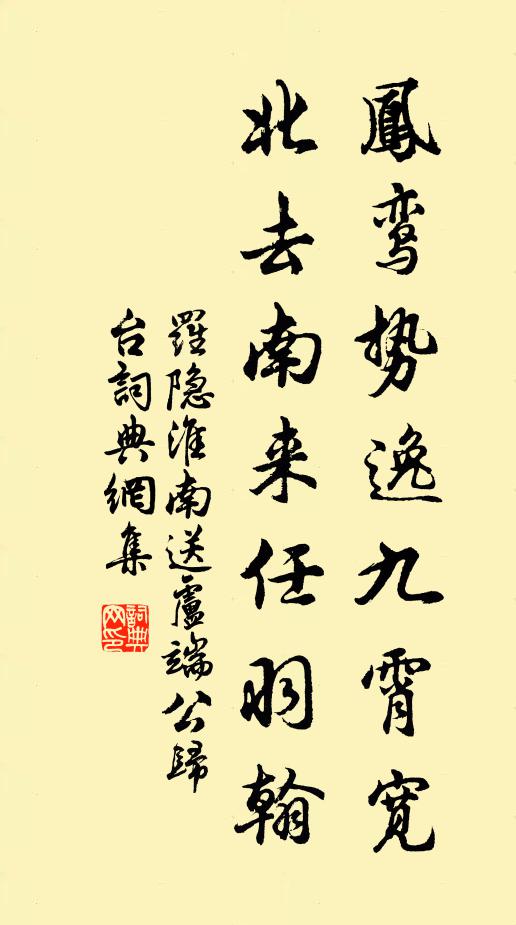 鳳鸾势逸九霄寬
北去南来任羽翰
羅隐淮南送盧端公歸
台詞典網集
詞典網印